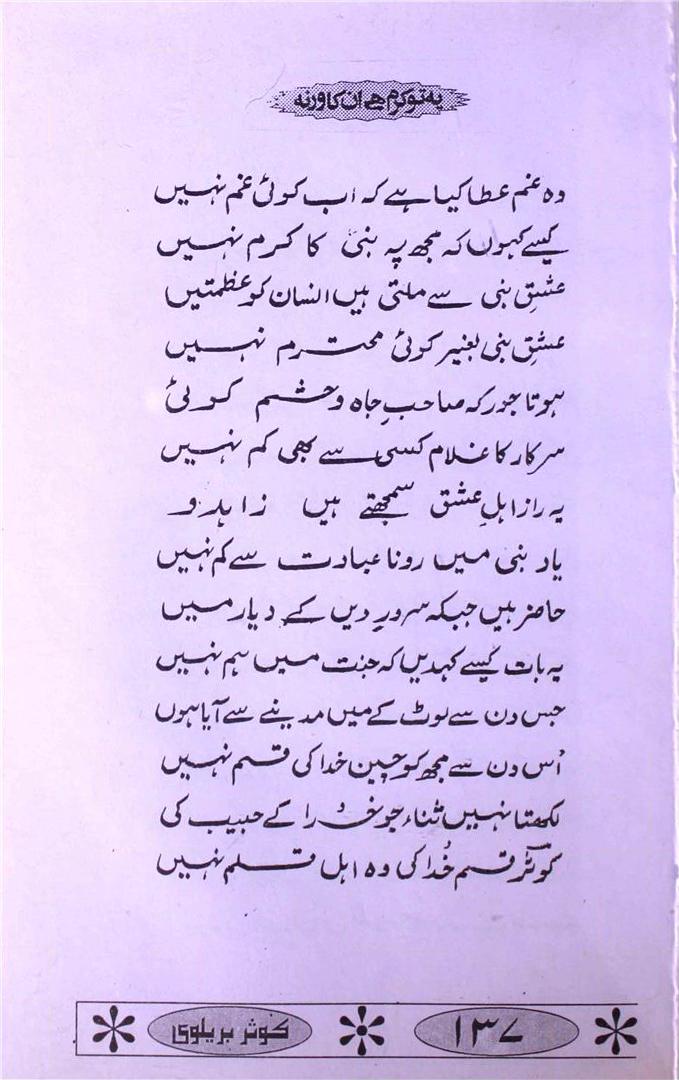 یہ تو کرم ہے ان کا ورنہ
وہ غم عطا کیا ہے کہ اب کوئی غم نہیں
کیسے کہوں کہ مجھ پہ نبیؐ کا کرم نہیں
عشقِ نبی سے ملتی ہیں انسان کو عظمتیں
عشقِ نبی بغیر کوئی محترم نہیں
ہوتا جو در کہ صاحبِ جاہ و حشم کوئی
سرکار کا غلام کسی سے بھی کم نہیں
یہ راز اہلِ عشق سمجھتے ہیں زاہدو
یادِ نبی میں رونا عبادت سے کم نہیں
حاضر ہیں جبکہ سرورِ دیں کے دیار میں
یہ بات کیسے کہدیں کہ جنت میں ہم نہیں
جس دن سے لوٹ کے میں مدینے سے آیا ہوں
اُس دن سے مجھ کو چین خدا کی قسم نہیں
لکھتا نہیں ثناء جو خدا کے حبیب کی
کوثرؔ قسم خُدا کی وہ اہل قلم نہیں
۱۳۷
کوثر بریلوی